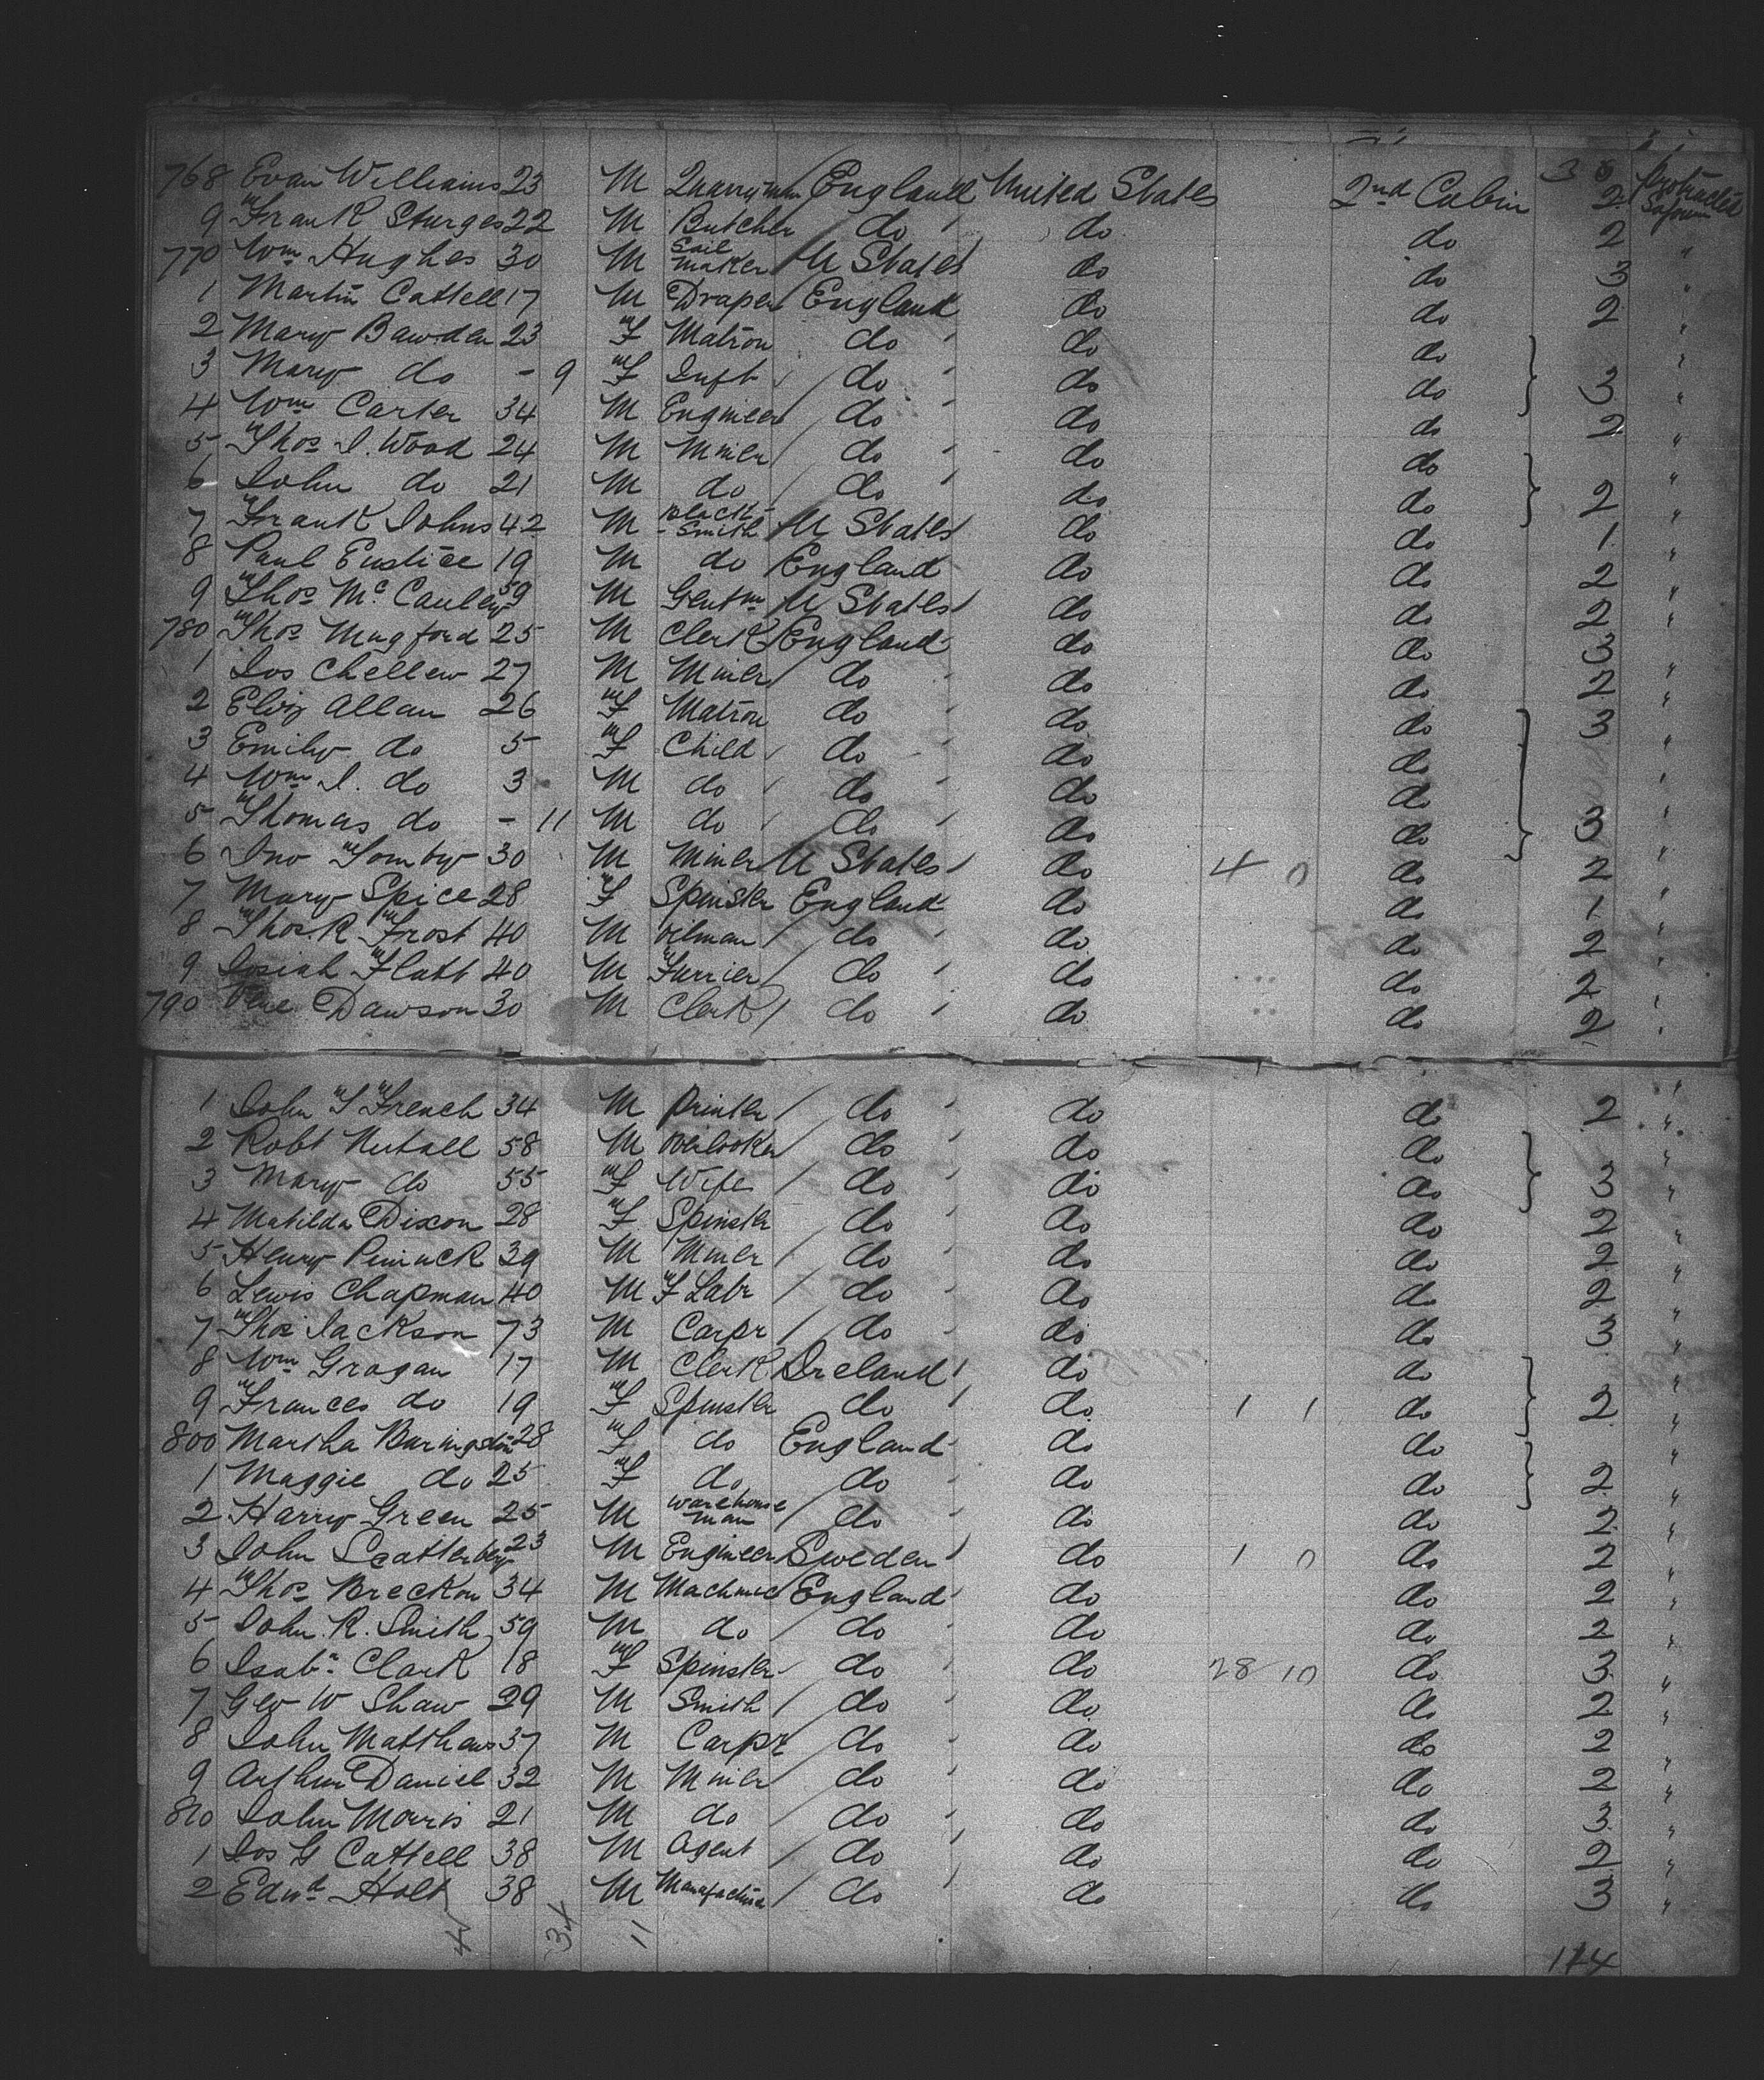 768 Evan Williams 23 M Quarryman England United States 2nd Cabin 2 Protracted Sojourn
9 Frank Sturges 22 M Butcher do do do 2 "
770 Wm Hughes 30 M Sail maker U States do do 3 "
1 Martin Cattell 17 M Draper England do do 2 "
2 Mary Bawden 23 F Matron do do do "
3 Mary do - 9 F Inft do do do 3 "
4 Wm Carter 34 M Engineer do do do 2 "
5 Thos J. Wood 24 M Miner do do do "
6 John do 21 M do do do do 2 "
7 Frank Johns 42 M Black-Smith U States do do 1 "
8 Paul Eustice 19 M do England do do 2 "
9 Thos McCauley 59 M Gentm U States do do 2 "
780 Thos Mugford 25 M Clerk England do do 3
1 Jos Chellew 27 M Miner do do do 2 "
2 Eliz Allan 26 F Matron do do do 3 "
3 Emily do 5 F Child do do do "
4 Wm J. do 3 M do do do do "
5 Thomas do - 11 M do do do do 3 "
6 Jno Tomby 30 M Miner U States do 4 0 do 2 "
7 Mary Spice 28 F Spinster England do do 1 "
8 Thos. R Frost 40 M Oilman do do do 2 "
9 Josiah Flatt 40 M Furrier do do do 2 "
790 Dawson 30 M Clerk do do do 2 "
1 John T French 34 M Printer do do do 2 "
2 Robt Nutall 58 M Overlooker do do do "
3 Mary do 55 F Wife do do do 3 "
4 Matilda Dixon 28 F Spinster do do do 2 "
5 Henry 39 M Miner do do do 2 "
6 Lewis Chapman 40 M F Labr do do do 2 "
7 Thos Jackson 73 M Carpr do do do 3 "
8 Wm Grogan 17 M Clerk Ireland do do "
9 Frances do 19 F Spinster do do 1 1 do 2 "
800 Martha Baringston 28 F do England do do "
1 Maggie do 25 F do do do do 2 "
2 Harry Green 25 M Warehouse man do do do 2 "
3 John Scatterberg 23 M Engineer Sweden do 1 0 do 2 "
4 Thos Breckon 34 M Machinic England do do 2 "
5 John. R. Smith 59 M do do do do 2 "
6 Isaba Clark 18 F Spinster do do 28 10 do 3 "
7 Geo W Shaw 29 M Smith do do do 2 "
8 John Matthews 37 M Carpr do do do 2 "
9 Arthur Daniel 32 M Miner do do do 2 "
810 John Morris 21 M do do do do 3 "
1 Jos G Cattell 38 M Agent do do do 2 "
2 Edwd Holt 38 M Manufacturer do do do 3 "
34 11